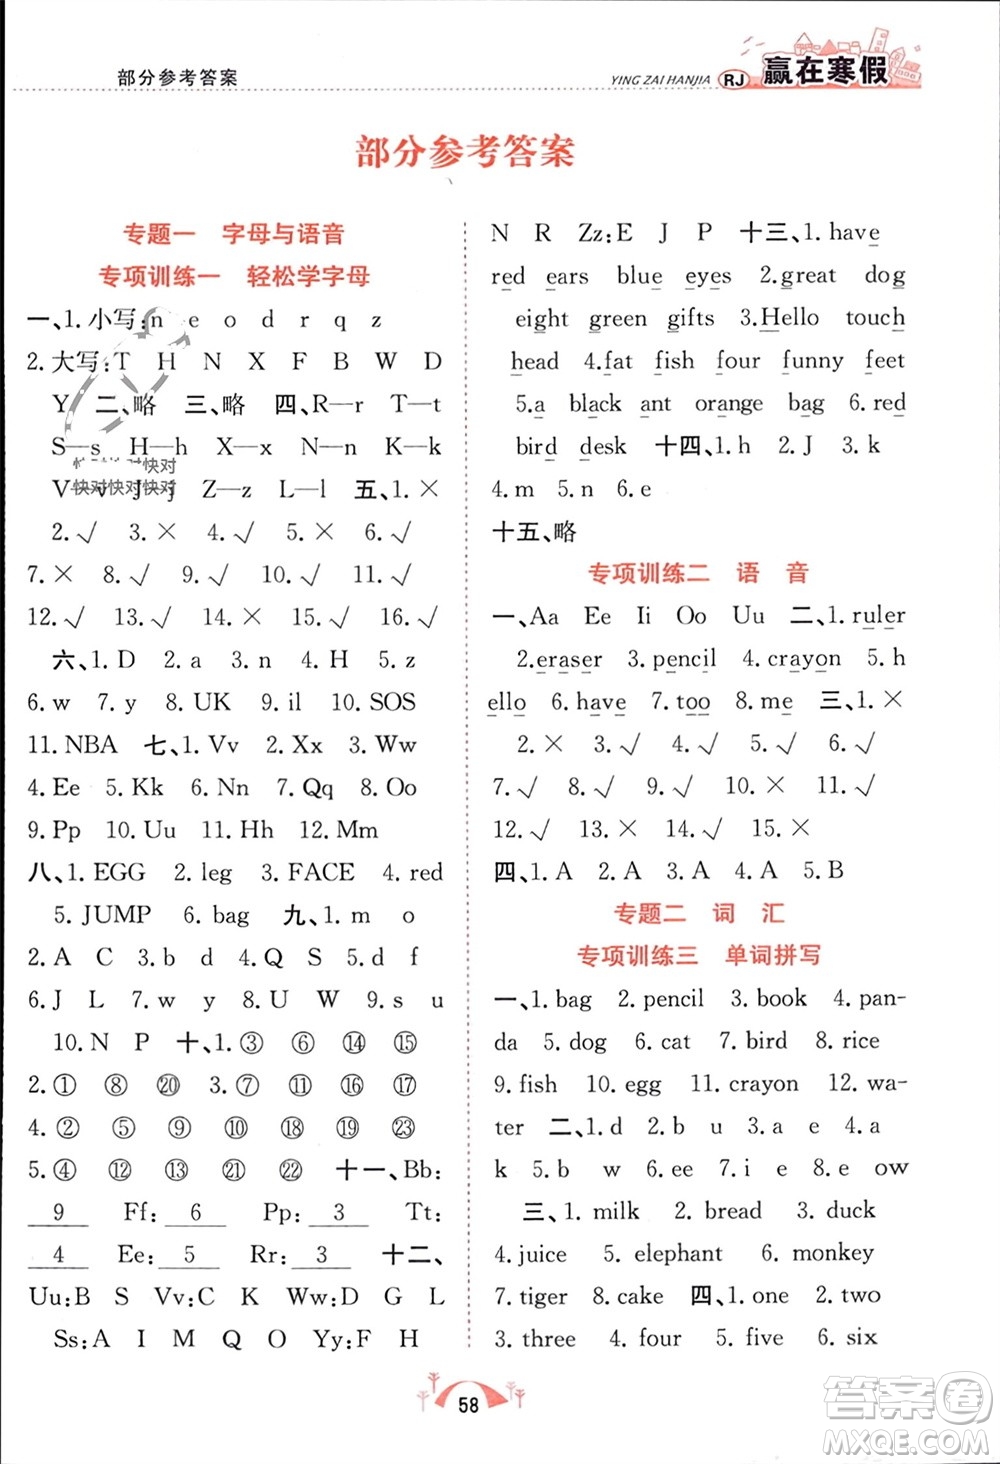 部分参考答案
YING ZAI HANJIA RJ 赢在寒假
部分参考答案
专题一 字母与语音
专项训练一 轻松学字母
一、1.小写:n e o d r q z
2.大写:T H N X F B W D
Y 二、略 三、略 四、R—r T—t
S—s H—h X—x N—n K—k
V—v J—j Z—z L—l 五、1.×
2.√ 3.× 4.√ 5.× 6.√
7.× 8.√ 9.√ 10.√ 11.√
12.√ 13.√ 14.× 15.√ 16.√
六、1.D 2.a 3.n 4.H 5.z
6.w 7.y 8.UK 9.il 10.SOS
11.NBA 七、1.Vv 2.Xx 3.Ww
4.Ee 5.Kk 6.Nn 7.Qq 8.Oo
9.Pp 10.Uu 11.Hh 12.Mm
八、1.EGG 2.leg 3.FACE 4.red
5.JUMP 6.bag 九、1.m o
2.A C 3.b d 4.Q S 5.d f
6.J L 7.w y 8.U W 9.s u
10.N P 十、1.③ ⑥ ⑭ ⑮
2.① ⑧ ⑳ 3.⑦ ⑪ ⑫ ⑰
4.② ⑤ ⑨ ⑩ ⑯ ⑲ ㉓
5.④ ⑬ ⑱ ㉑ ㉒ 十一、Bb:
9 Ff: 6 Pp: 3 Tt:
4 Ee: 5 Rr: 3 十二、
Uu:B S Vv:C K W Dd:D G L
Ss:A I M Q O Yy:F H
N R Zz:E J P 十三、1.have
red ears blue eyes 2.great dog
eight green gifts 3.Hello touch
head 4.fat fish four funny feet
5.a black ant orange bag 6.red
bird desk 十四、1.h 2.J 3.k
4.m 5.n 6.e
十五、略
专项训练二 语 音
一、Aa Ee Ii Oo Uu 二、1.ruler
2.eraser 3.pencil 4.crayon 5.h
ello 6.have 7.too 8.me 三、1.×
2.× 3.√ 4.√ 5.× 6.√
7.√ 8.√ 9.× 10.√ 11.×
12.√ 13.× 14.√ 15.×
四、1.A 2.A 3.A 4.A 5.B
专题二 词 汇
专项训练三 单词拼写
一、1.bag 2.pencil 3.book 4.pan-
da 5.dog 6.cat 7.bird 8.rice
9.fish 10.egg 11.crayon 12.wa-
ter 二、1.u 2.b u 3.a e 4.a
k 5.w i 6.a e 7.i e 8.e ow
三、1.milk 2.bread 3.duck
4.juice 5.elephant 6.monkey
7.tiger 8.cake 四、1.one 2.two
3.three 4.four 5.five 6.six
58
答案卷
MXQE.COM
快对快对快对